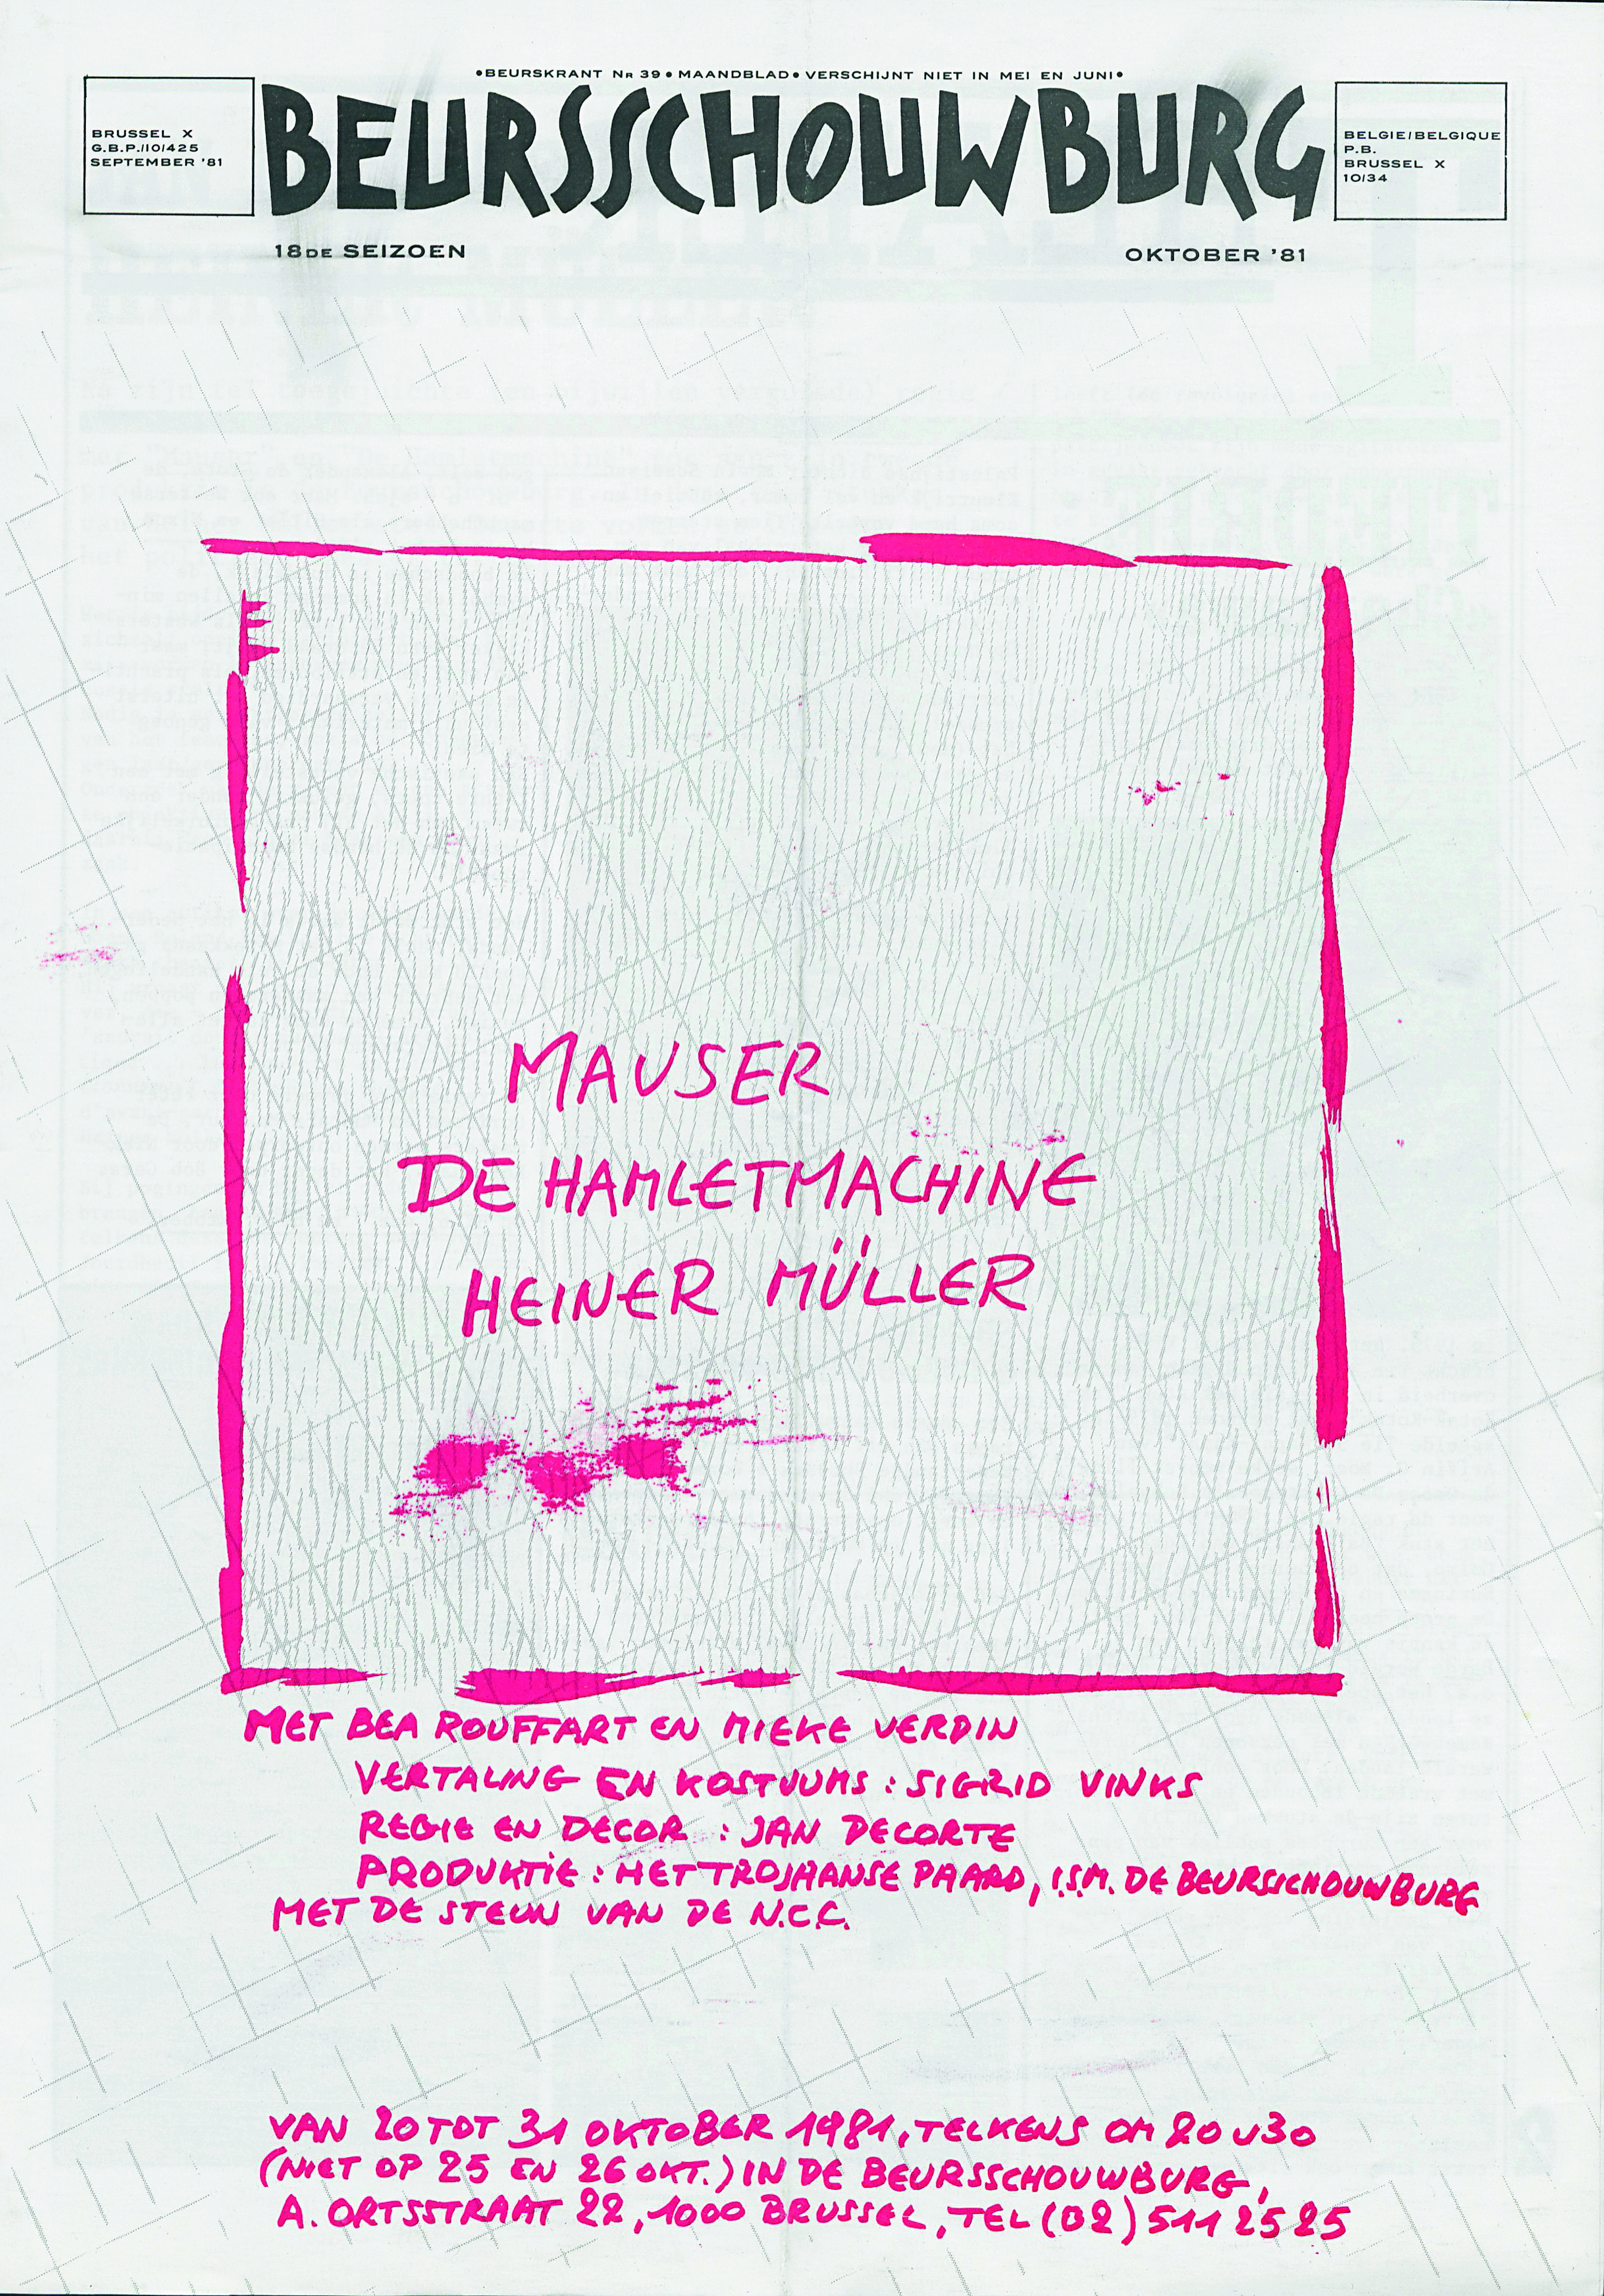 •BEURSKRANT NR 39•MAANDBLAD•VERSCHIJNT NIET IN MEI EN JUNI•
BRUSSEL X
G.B.P./10/425
SEPTEMBER '81
BEURSSCHOUWBURG
BELGIE/BELGIQUE
P.B.
BRUSSEL X
10/34
18DE SEIZOEN
OKTOBER '81
MAUSER
DE HAMLETMACHINE
HEINER MÜLLER
MET BEA ROUFFART EN MIEKE VERDIN
VERTALING EN KOSTUUMS : SIGRID VINKS
REGIE EN DECOR : JAN DECORTE
PRODUKTIE : HET TROJAANSE PAARD, I.S.M. DE BEURSSCHOUWBURG
MET DE STEUN VAN DE N.C.C.
VAN 20 TOT 31 OKTOBER 1981, TELKENS OM 20 U 30
(NIET OP 25 EN 26 OKT.) IN DE BEURSSCHOUWBURG,
A. ORTSSTRAAT 22, 1000 BRUSSEL, TEL (02) 511 25 25